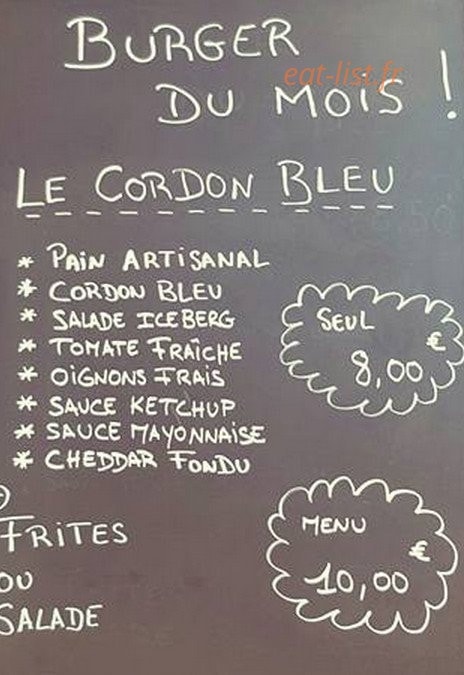 BURGER
eat-list.fr
DU MOIS !
LE CORDON BLEU
* PAIN ARTISANAL
* CORDON BLEU
* SALADE ICEBERG
* TOMATE FRAÎCHE
* OIGNONS FRAIS
* SAUCE KETCHUP
* SAUCE MAYONNAISE
* CHEDDAR FONDU
SEUL
€
8,00
FRITES
OU
SALADE
MENU
€
10,00